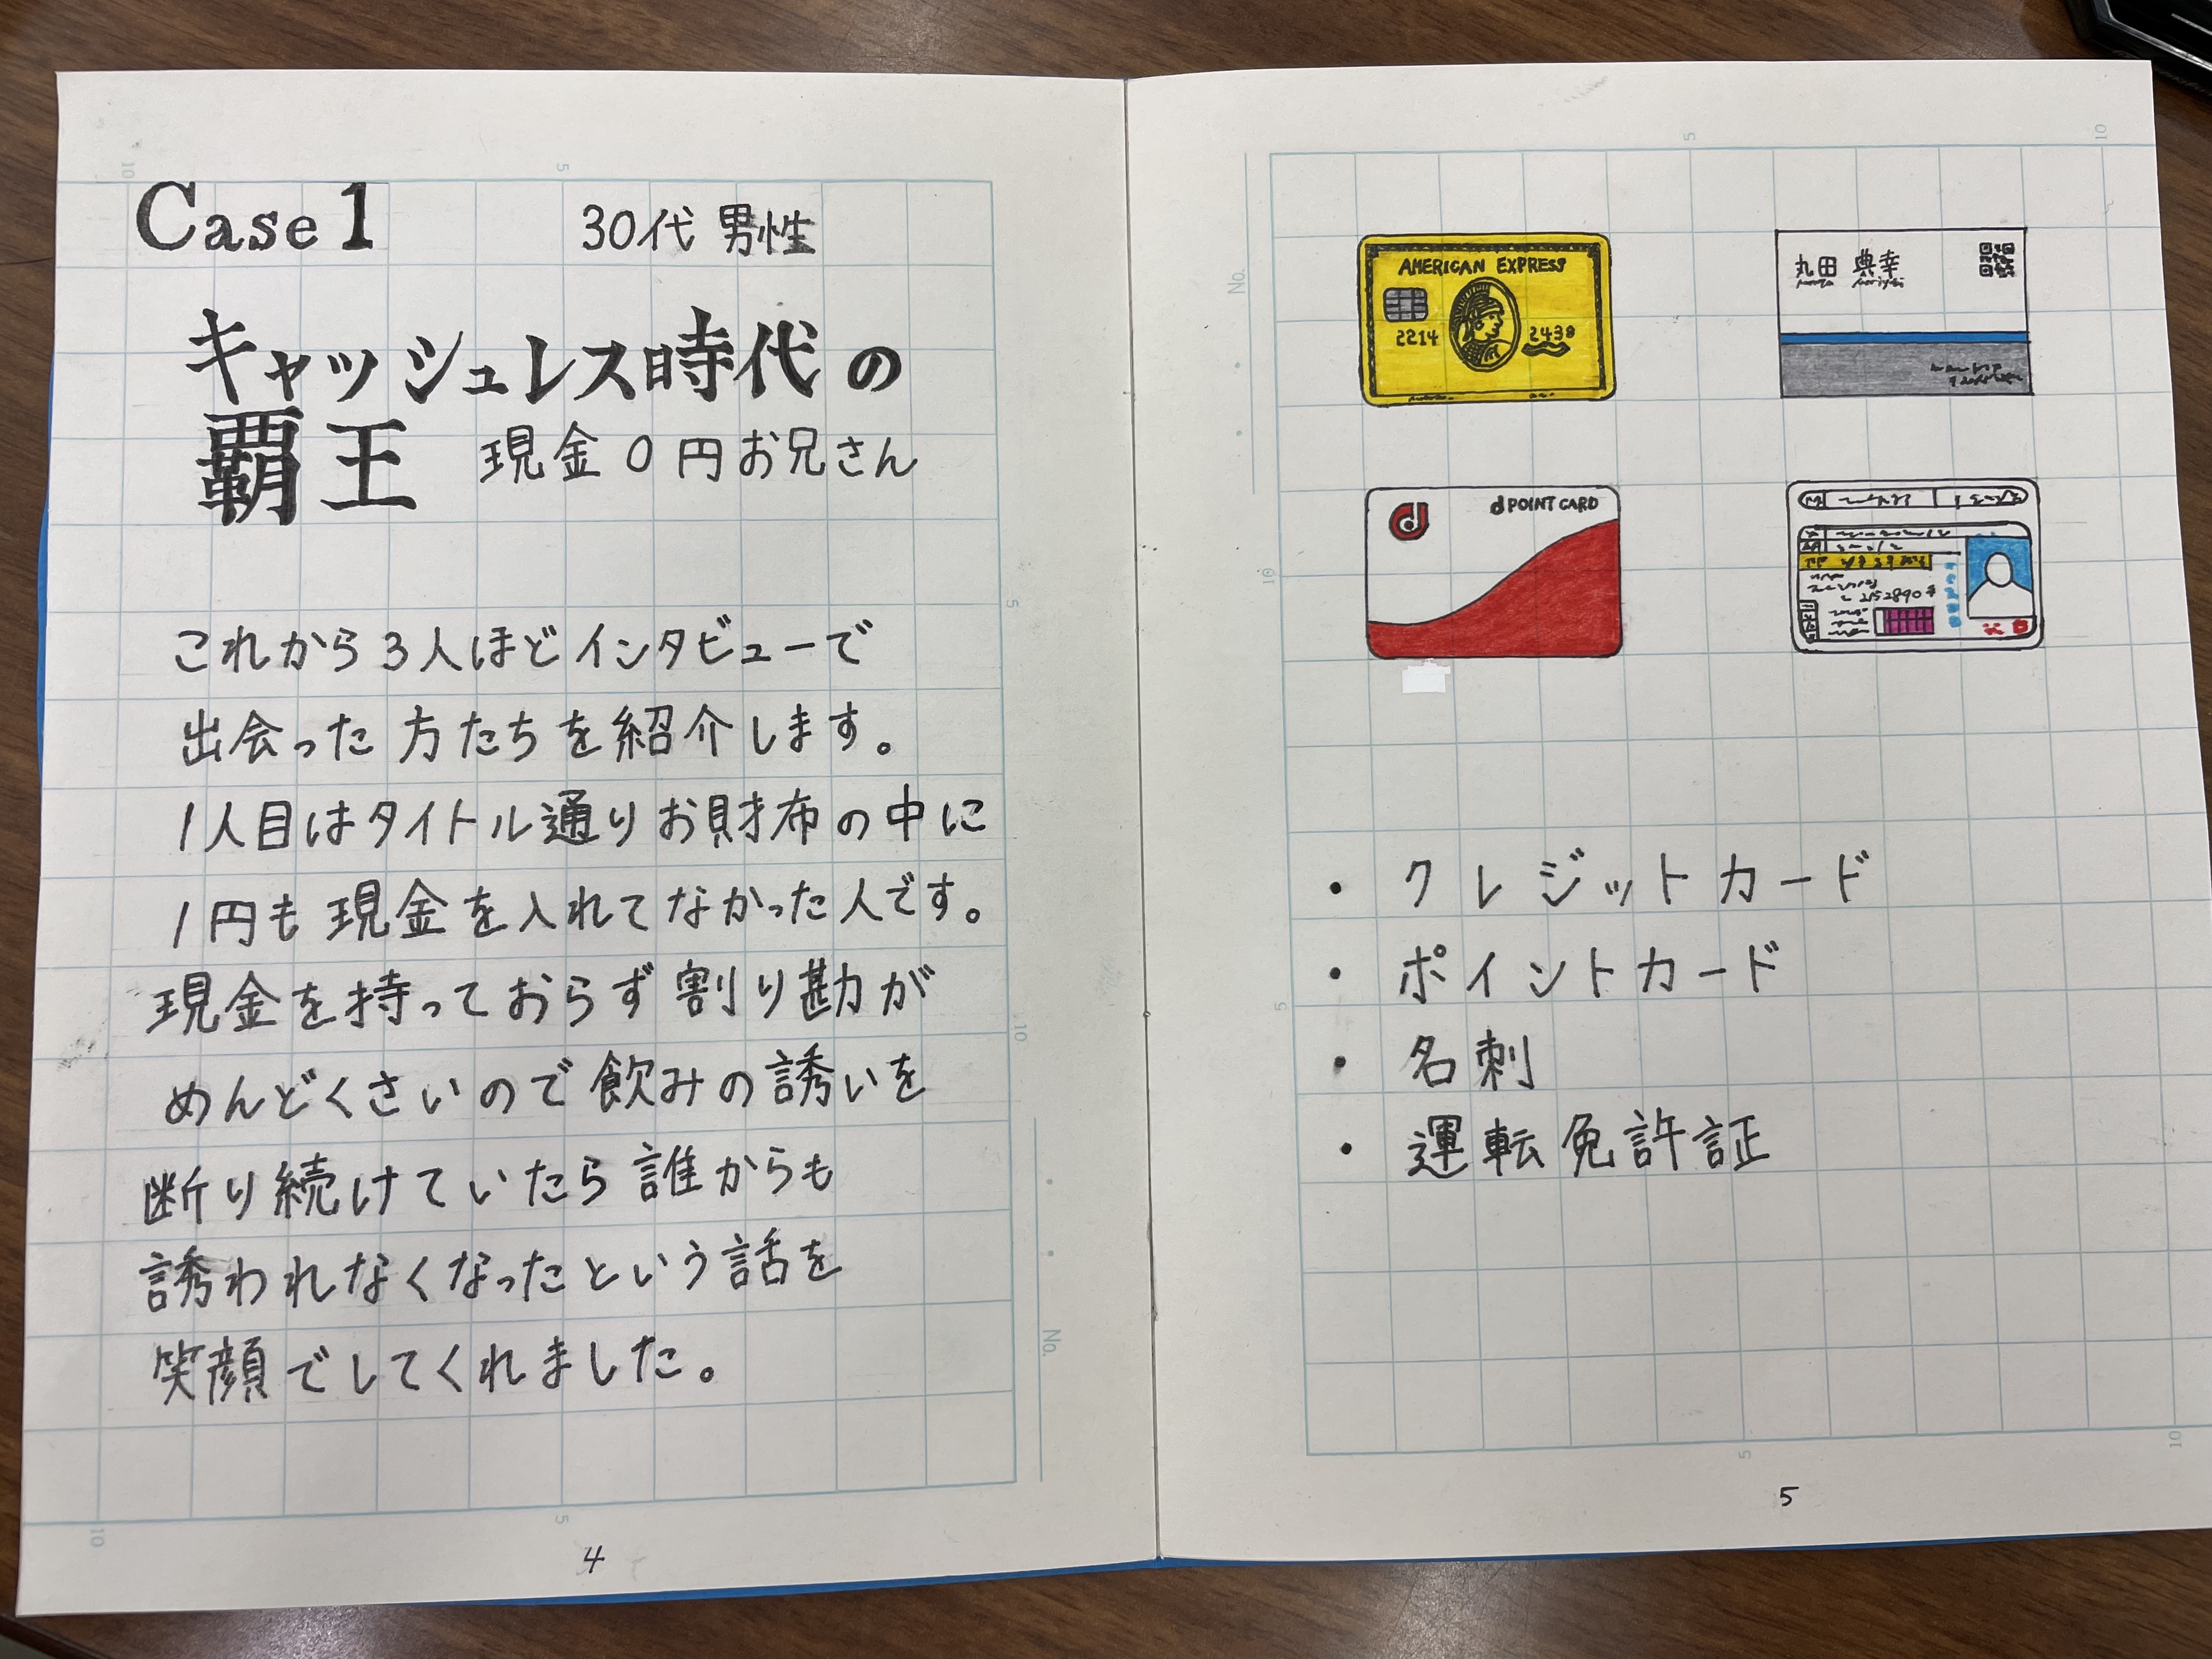 Case 1
30代 男性
キャッシュレス時代の
覇王 現金0円お兄さん
これから3人ほどインタビューで
出会った方たちを紹介します。
1人目はタイトル通りお財布の中に
1円も現金を入れてなかった人です。
現金を持っておらず割り勘が
めんどくさいので飲みの誘いを
断り続けていたら誰からも
誘われなくなったという話を
笑顔でしてくれました。
4
No.
AMERICAN EXPRESS
2214 2438
丸田 典幸
d
d POINT CARD
2152890
・クレジットカード
・ポイントカード
・名刺
・運転免許証
5
No.
5
10
5
10
5
10
5
10
5
10
5
10